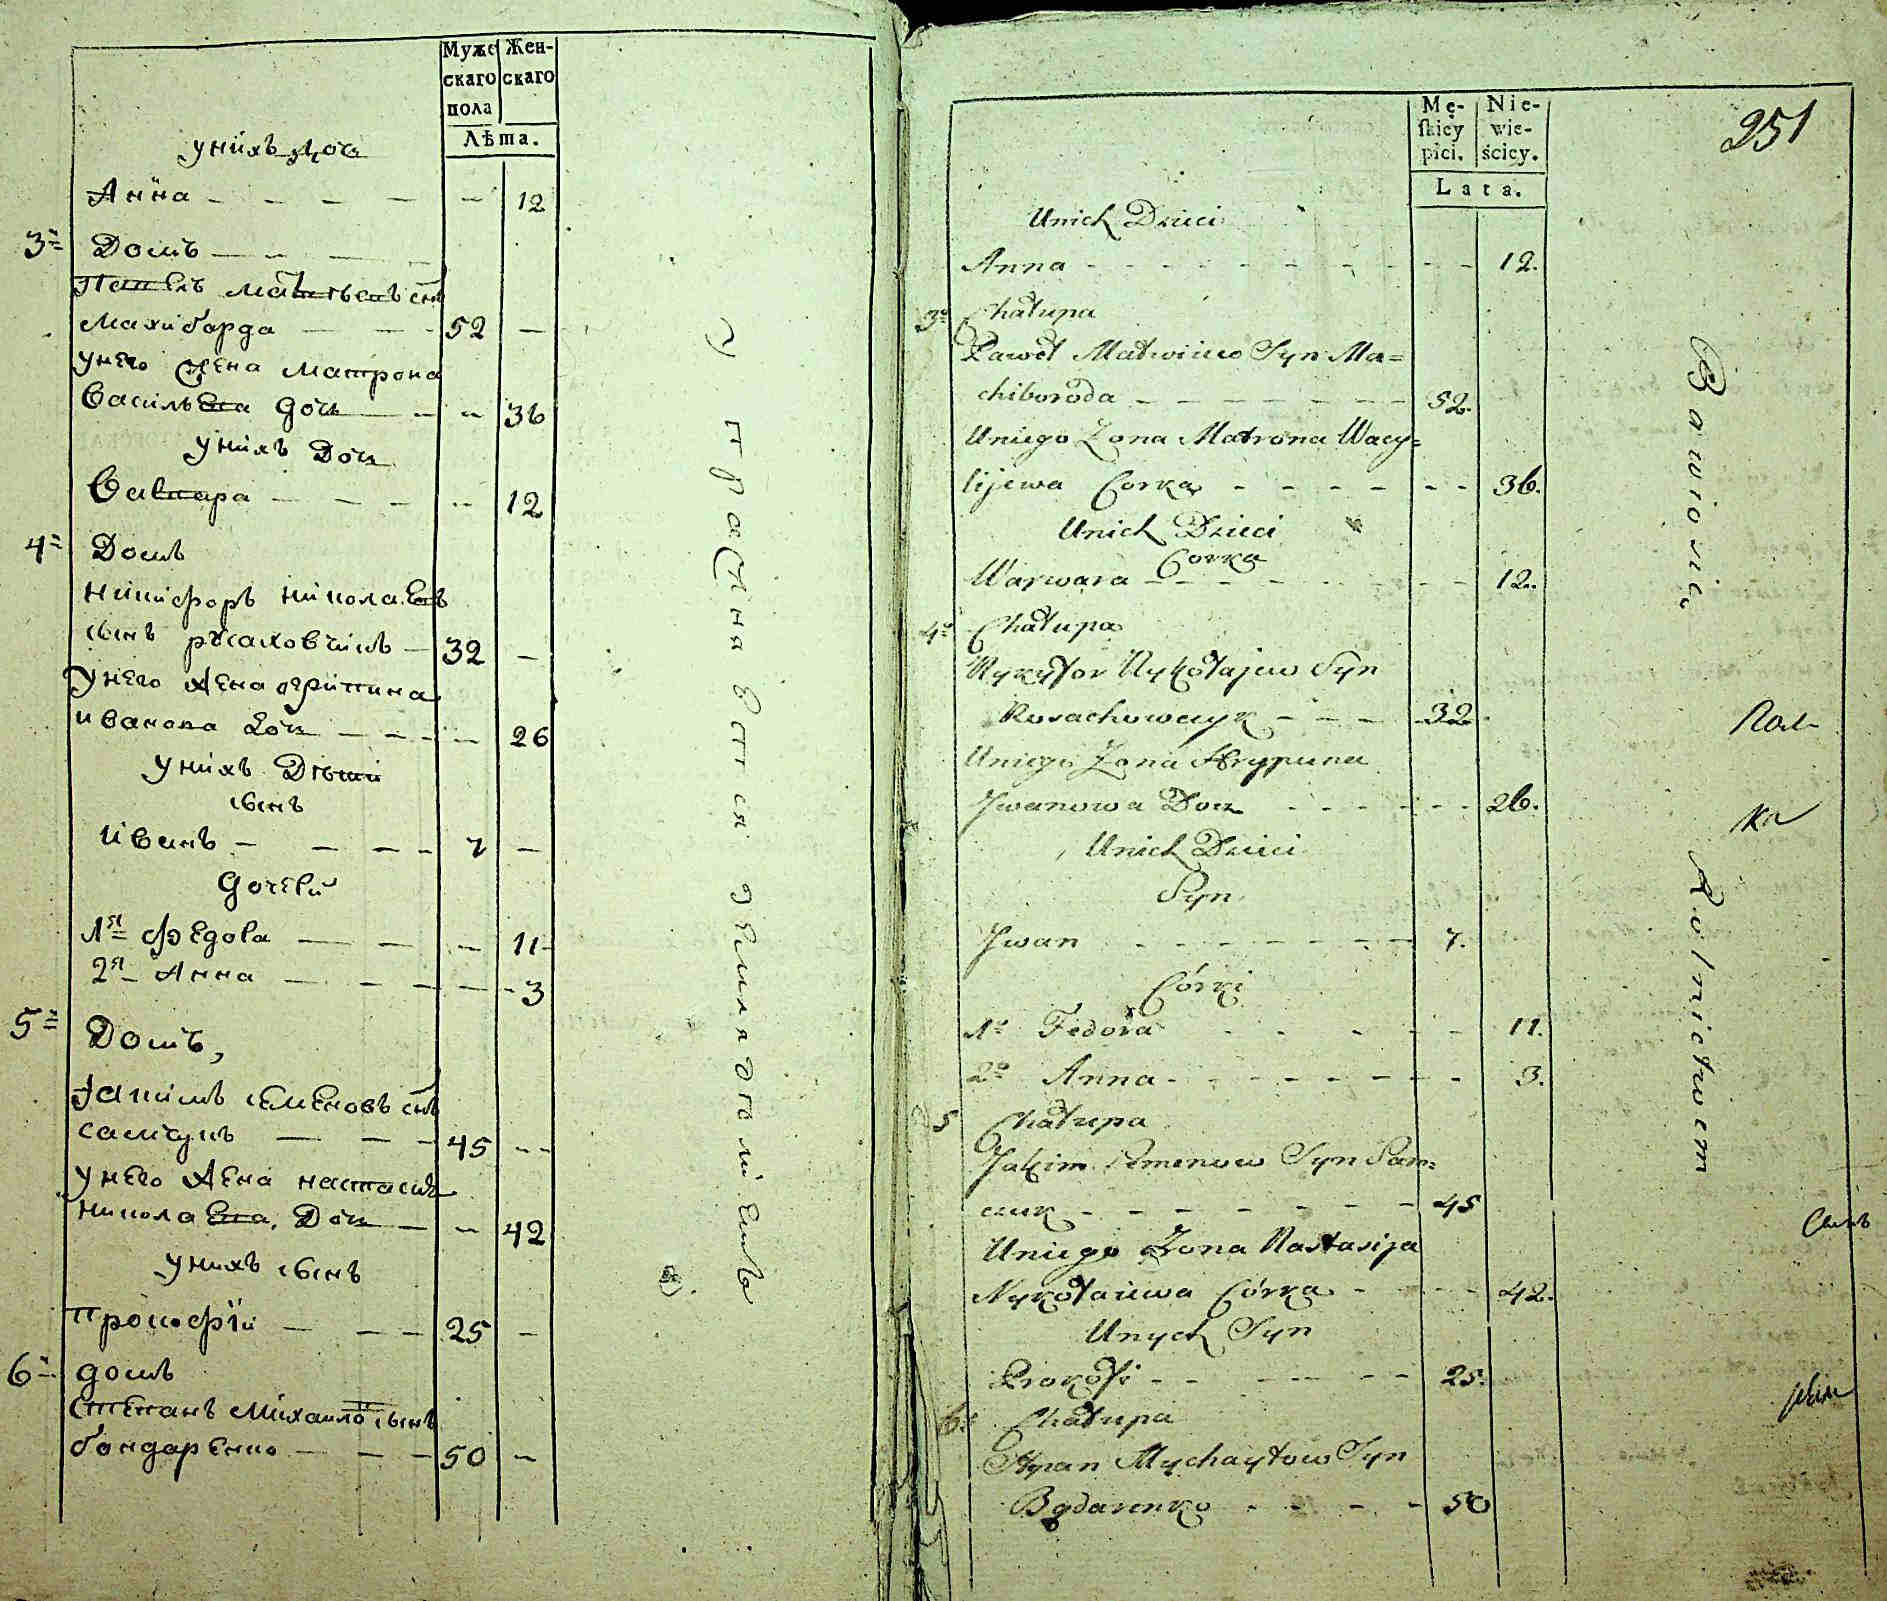 Муже Жен-
скаго скаго
пола
Лѣта.
унихъ доч
Анна — — — — — 12
3я Домъ — — —
Павелъ Матвѣевъ снъ
Махиборда — — — 52 —
унего жена Матрона
Васильева доч — — — 36
унихъ Доч
Варвара — — — — 12
4я Домъ
никифоръ николаевъ
сынъ русаховчикъ — 32 —
унего жена огрипина
иванова доч — — — 26
унихъ Дѣти
сынъ
иванъ — — — — 7 —
дочеви
1я федора — — — — 11
2я Анна — — — — 3
5я Домъ,
Іакимъ семеновъ снъ
самчукъ — — — 45 —
унего жена настасия
николаева, Доч — — 42
унихъ сынъ
прокофій — — — 25 —
6я домъ
Степанъ михайловъ сынъ
бондаренко — — — 50 —
упражняется земледелiемъ
251
Mę- Nie-
skiey wie-
płci. ściey.
Lata.
Unich Dzieci
Anna - - - - - - - - - - 12.
3o Chałupa
Paweł Matwiiew Syn Ma=
chiboroda - - - - - - - 52.
Uniego Zona Matrona Wacy=
lijewa Corka - - - - - - - 36.
Unich Dzieci
Corka
Warwara - - - - - - - - - 12.
4o Chałupa
Nykyfor Nykołajew Syn
Rusachowczyk - - - - 32
Uniego Zona Hrypuna
Jwanowa Docz - - - - - - 26.
Unich Dzieci
Syn.
Jwan - - - - - - - - 7.
Córki
1o Fedora - - - - - 11.
2o Anna - - - - - - - - 3.
5 Chałupa
Jakim Semenow Syn Sam=
czuk - - - - - - - - 45
Uniego Zona Nastasija
Nykołaiewa Córka - - - - 42.
Unych Syn
Prokofi - - - - - - 25.
6o Chałupa
Stepan Mychayłow Syn
Bądarenko - - - - 50
Bawiosie Rolnictwem